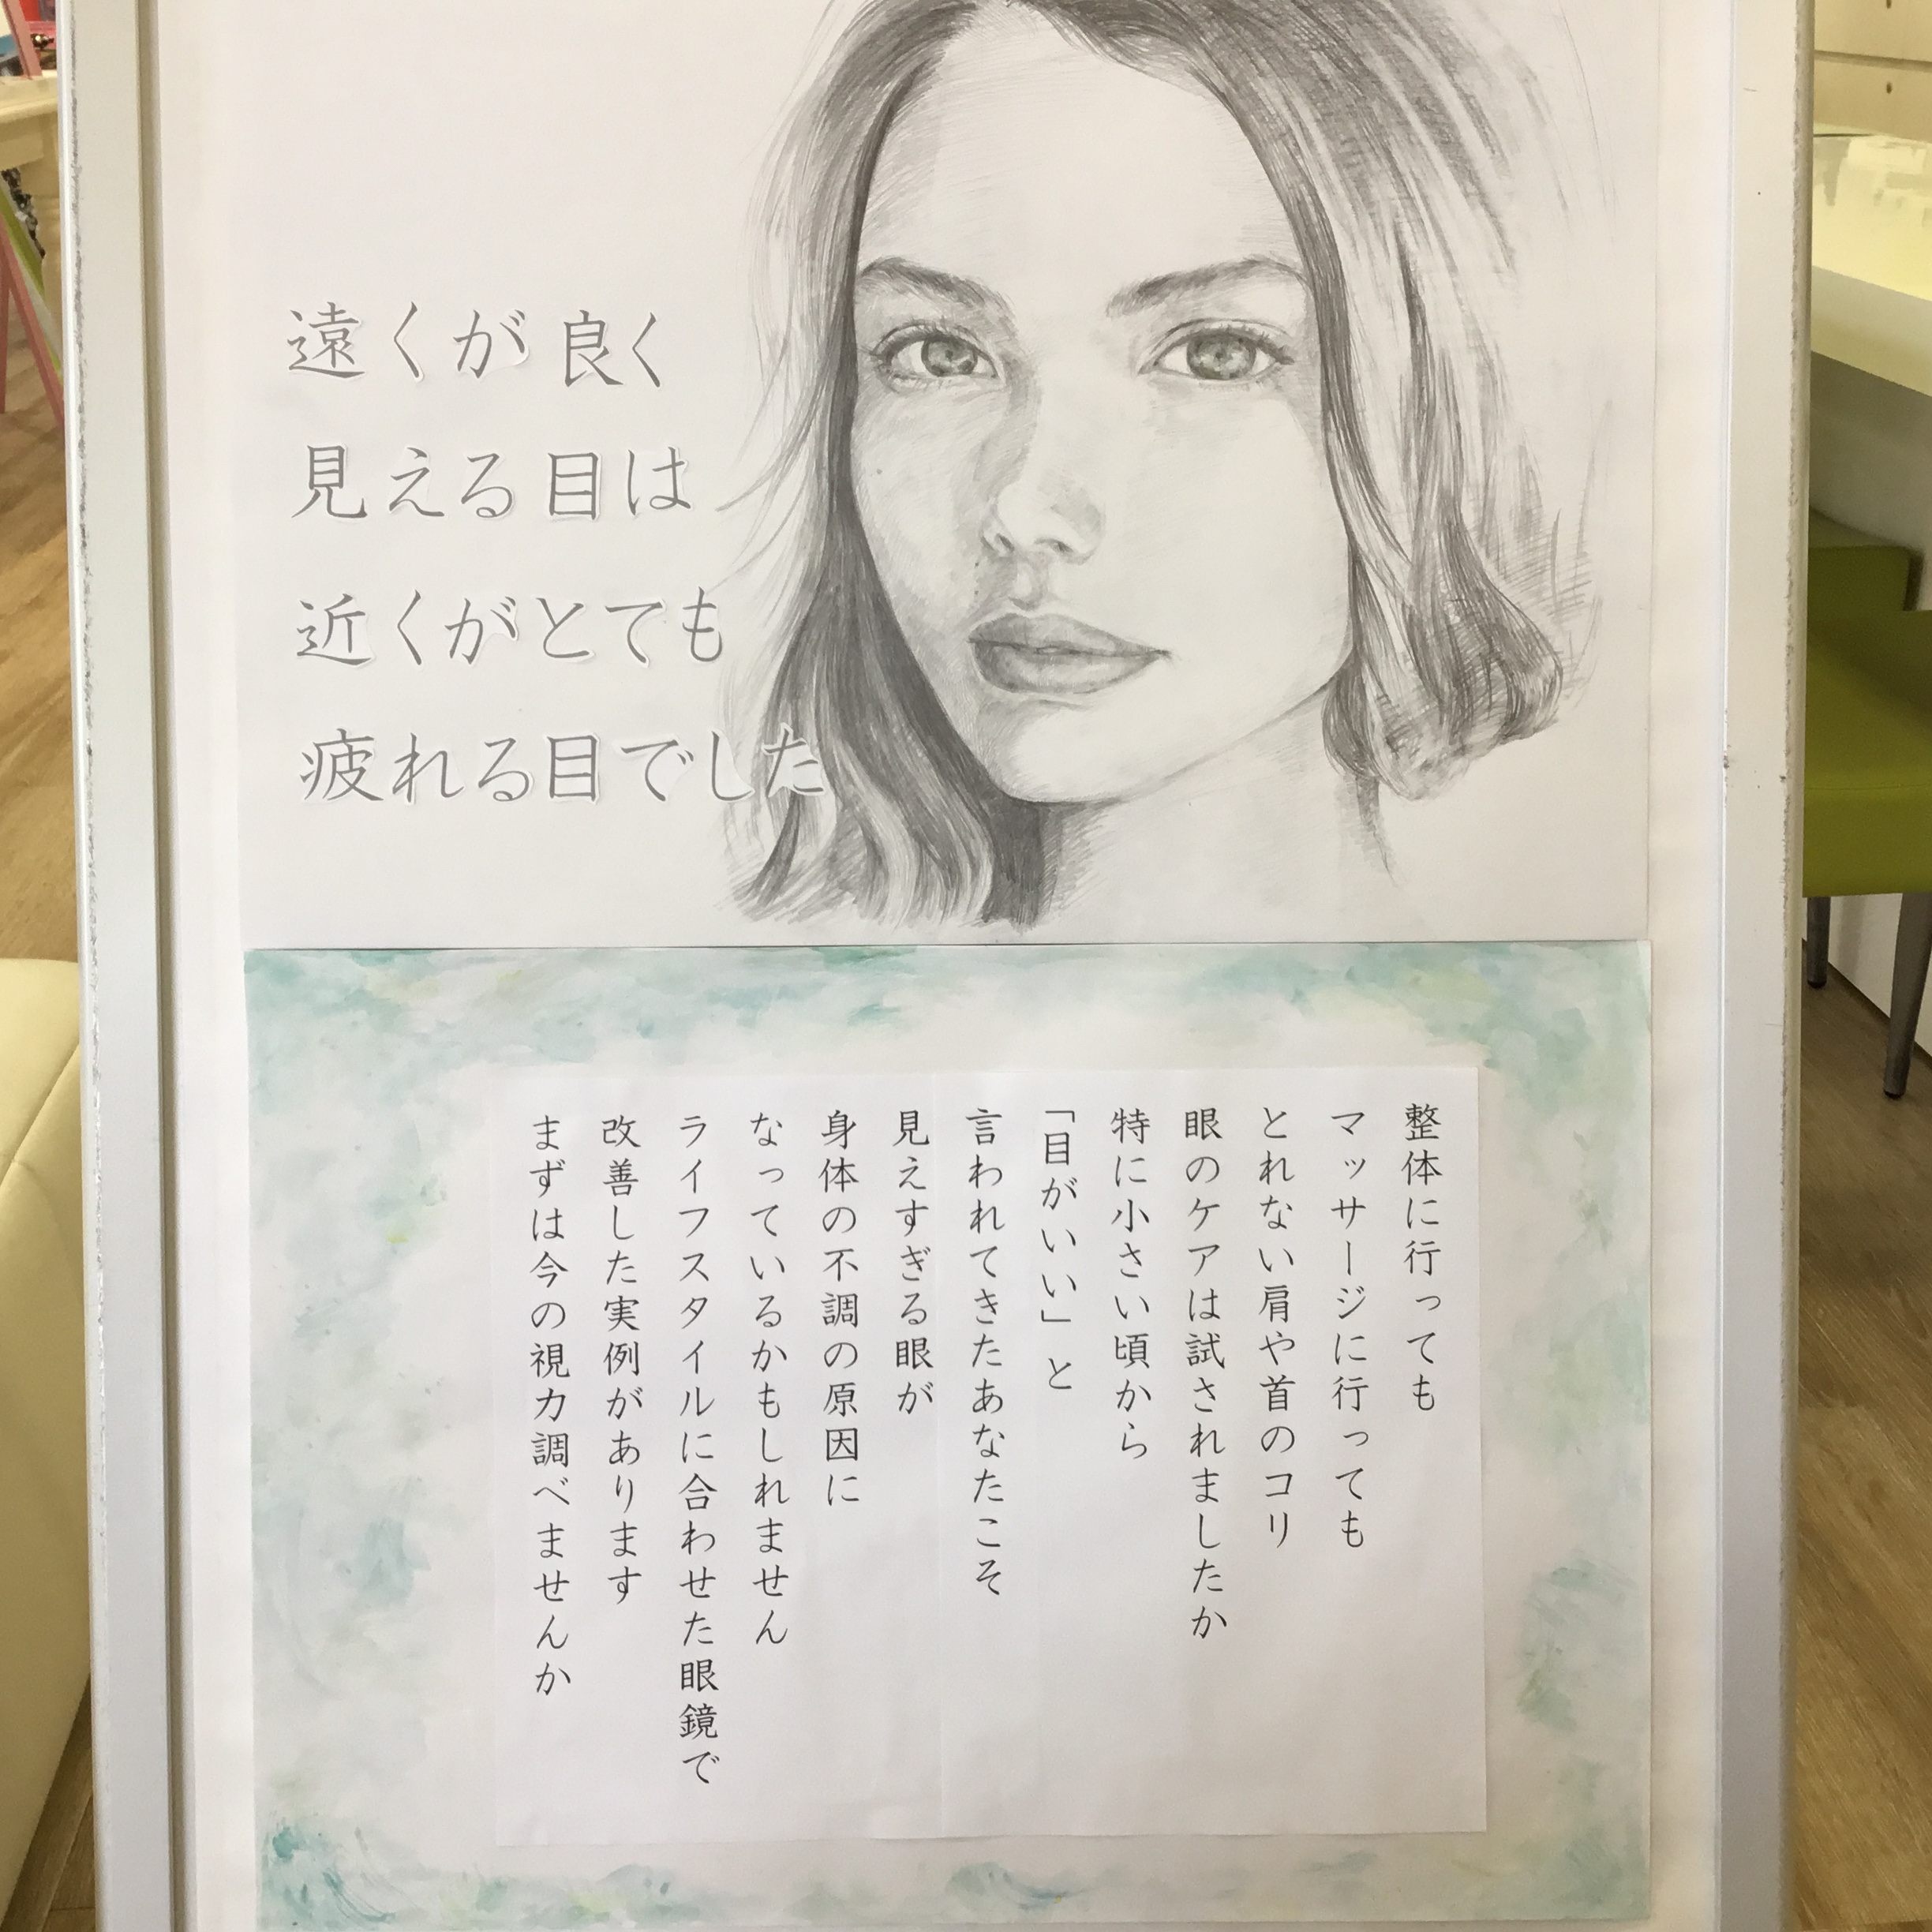 遠くが良く
見える目は
近くがとても
疲れる目でした
整体に行っても
マッサージに行っても
とれない肩や首のコリ
眼のケアは試されましたか
特に小さい頃から
「目がいい」と
言われてきたあなたこそ
見えすぎる眼が
身体の不調の原因に
なっているかもしれません
ライフスタイルに合わせた眼鏡で
改善した実例があります
まずは今の視力調べませんか